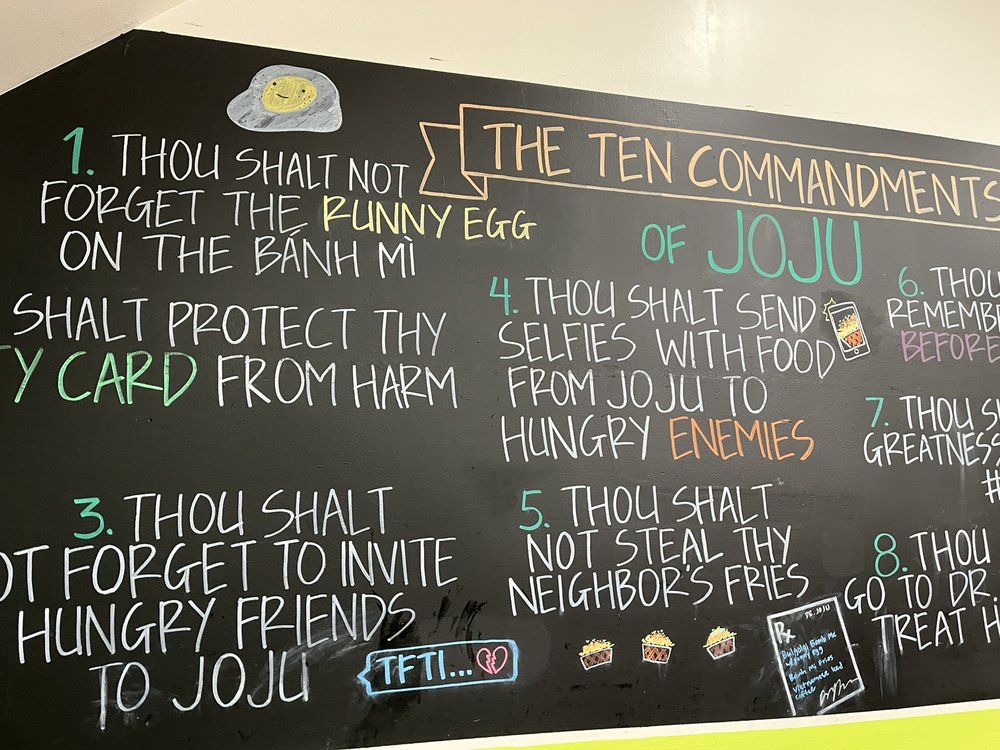 THE TEN COMMANDMENTS
OF JOJU
1. THOU SHALT NOT
FORGET THE RUNNY EGG
ON THE BÁNH MÌ
SHALT PROTECT THY
TY CARD FROM HARM
3. THOU SHALT
OT FORGET TO INVITE
HUNGRY FRIENDS
TO JOJU
TFTI...
4. THOU SHALT SEND
SELFIES WITH FOOD
FROM JOJU TO
HUNGRY ENEMIES
5. THOU SHALT
NOT STEAL THY
NEIGHBOR'S FRIES
6. THOU
REMEMB
BEFORE
7. THOU S
GREATNESS
#
8. THOU
GO TO DR.
TREAT H
DR. JOJU
Rx
Bulgogi Banh Mi
w/ runny egg
Banh Mi Fries
Vietnamese Iced
Coffee